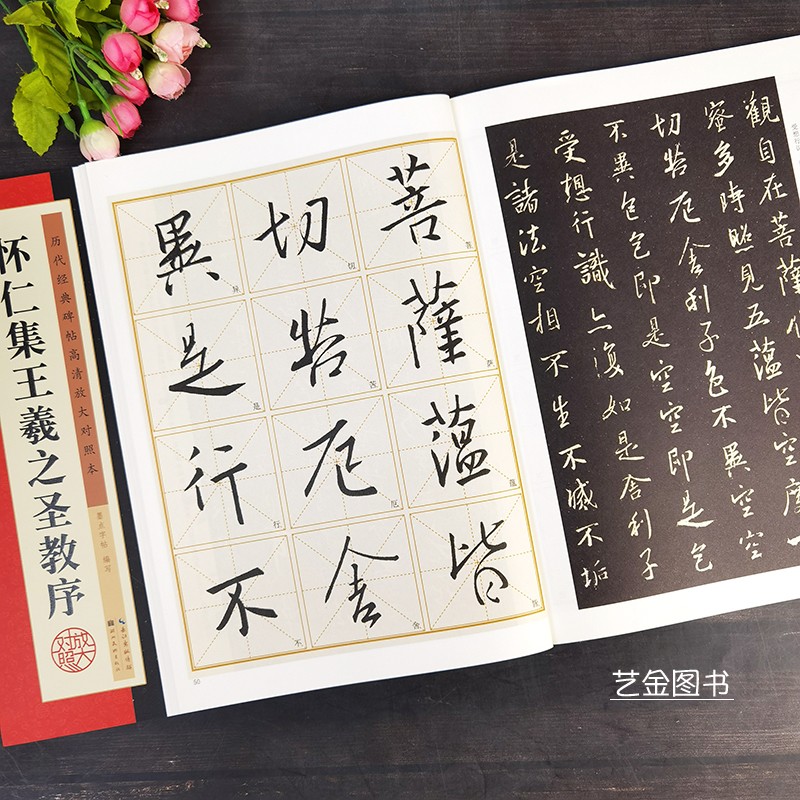 怀仁集王羲之圣教序
历代经典碑帖高清放大对照本
墨点字帖 编写
放大对照
長江出版傳媒
菩薩蕰皆
切苦厄舍
異是行不
50
觀自在菩薩
蜜多時照見五蕰皆空度一
切苦厄舍利子色不異空空
不異色色即是空空即是色
受想行識亦復如是舍利子
是諸法空相不生不滅不垢
艺金图书